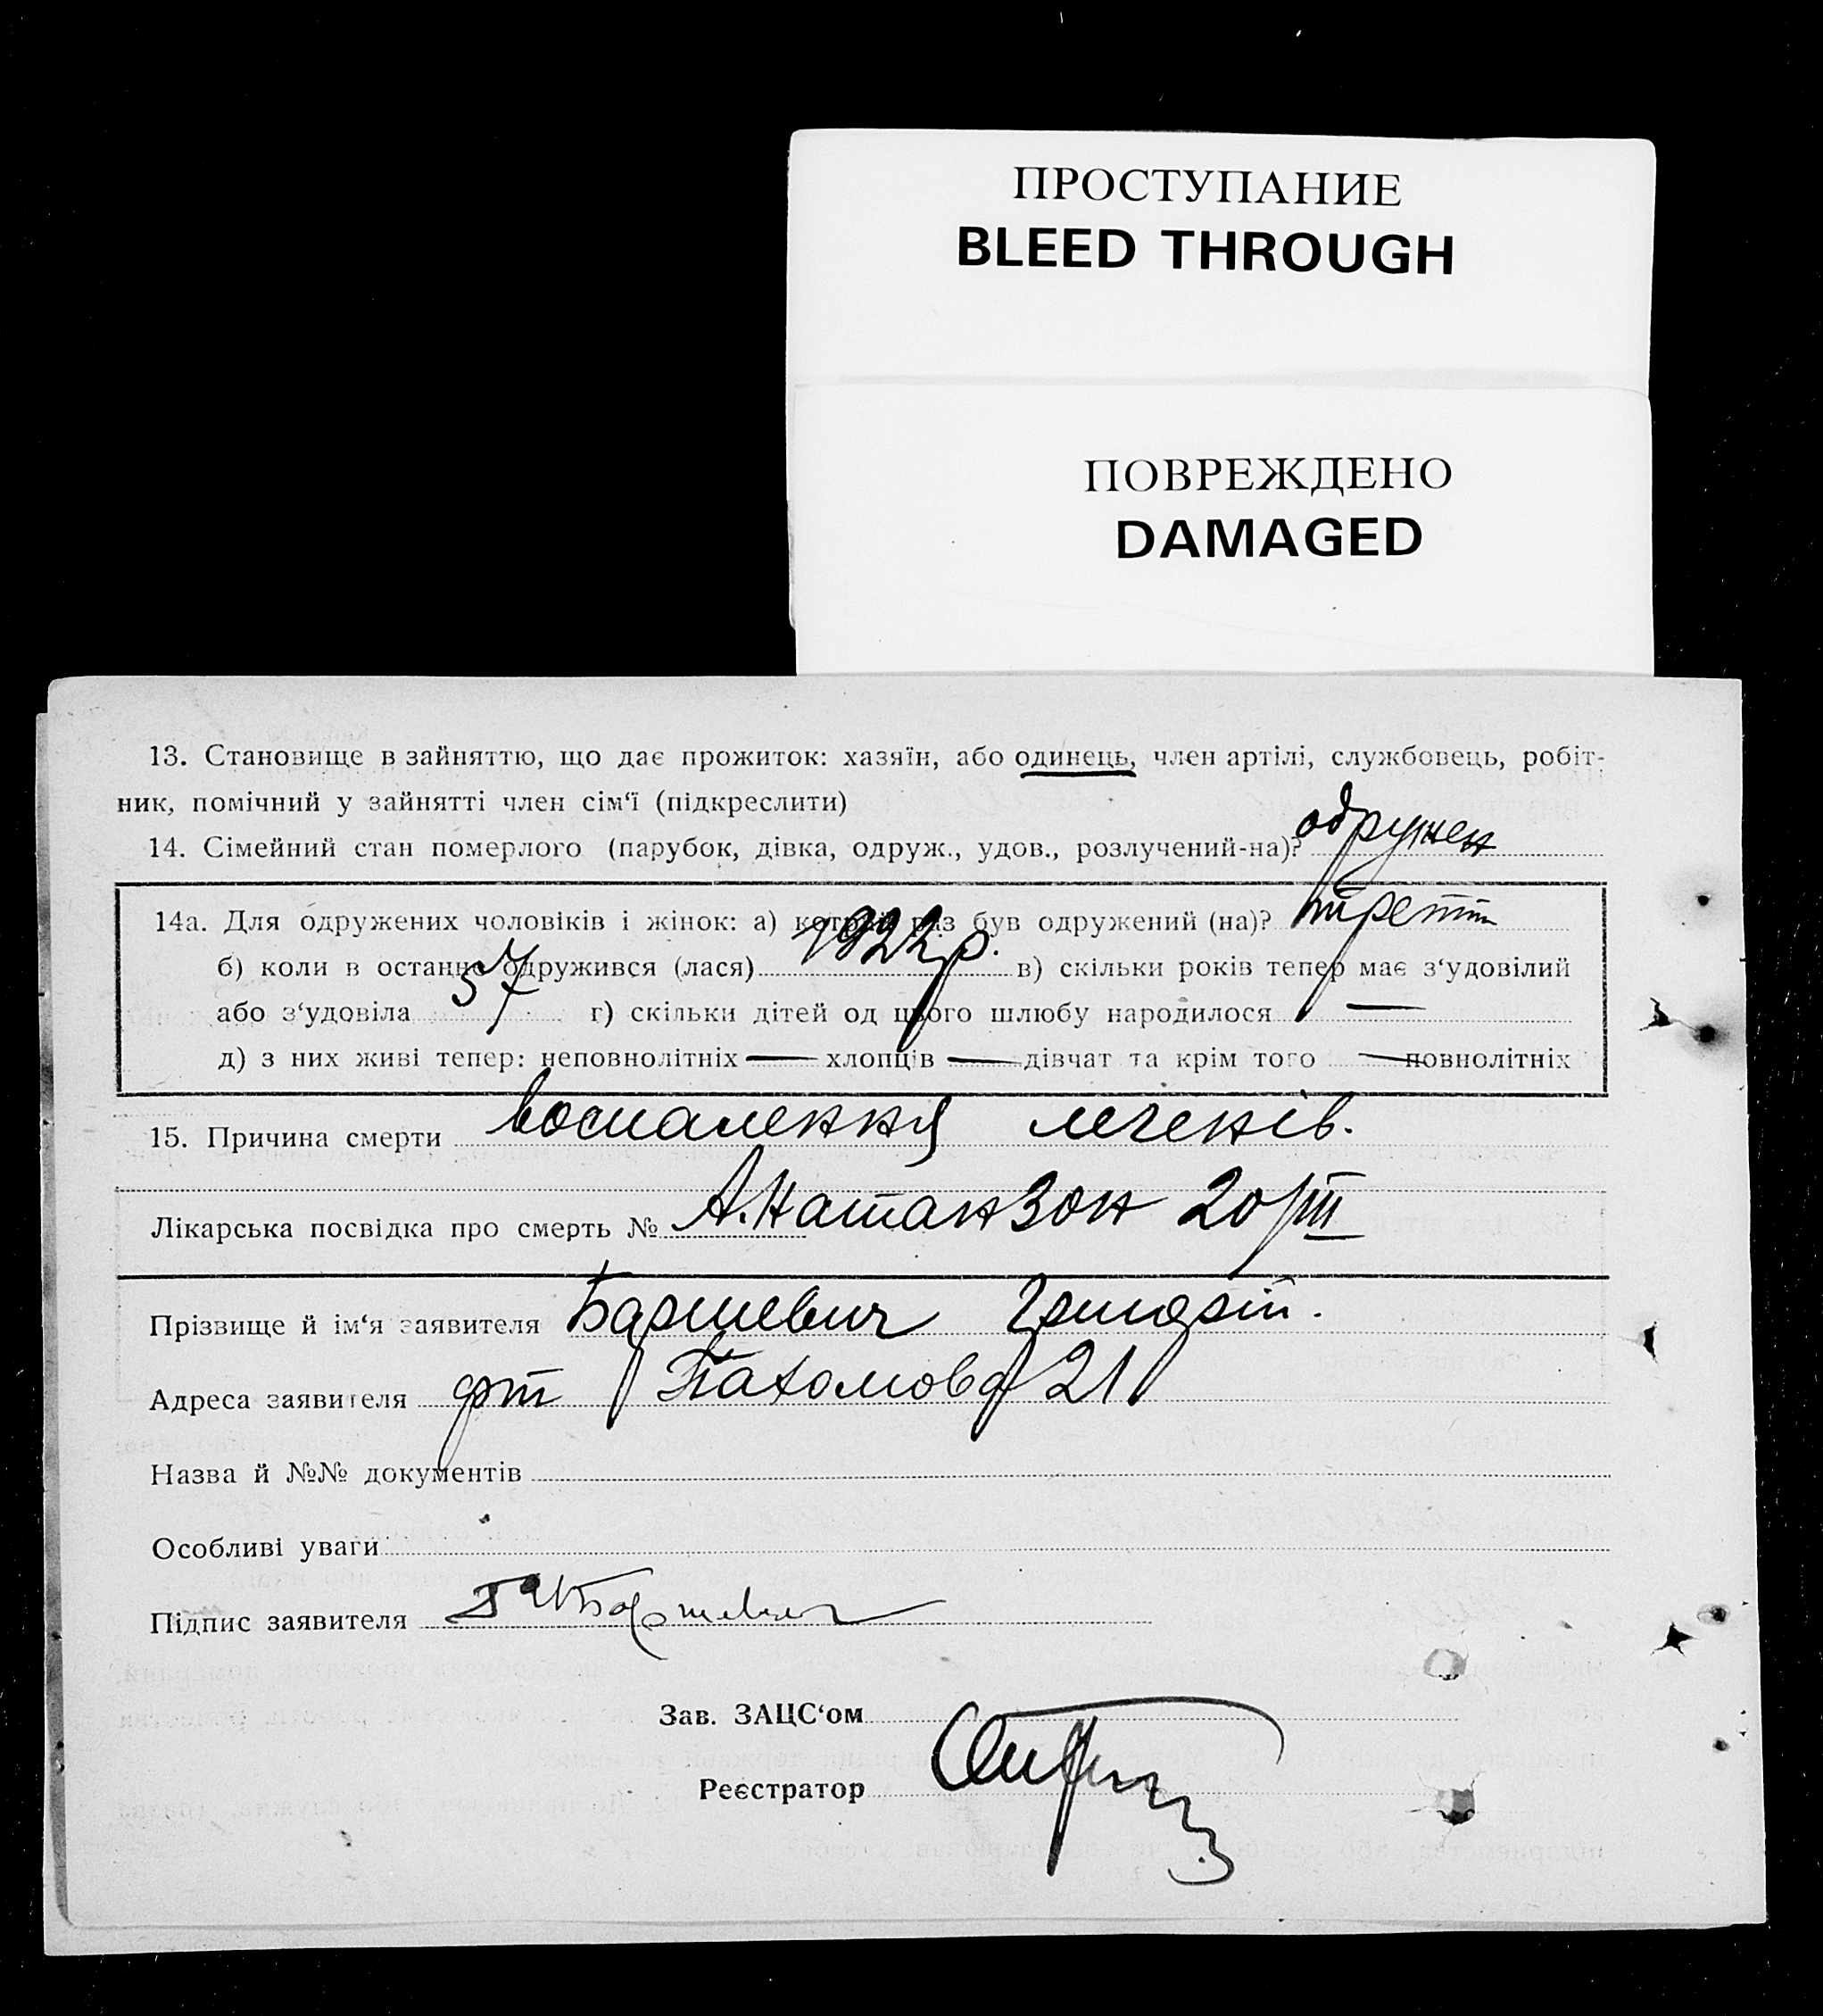 ПРОСТУПАНИЕ
BLEED THROUGH
ПОВРЕЖДЕНО
DAMAGED
13. Становище в зайняттю, що дає прожиток: хазяїн, або одинець, член артілі, службовець, робіт-
ник, помічний у зайнятті член сім‘ї (підкреслити)
14. Сімейний стан померлого (парубок, дівка, одруж., удов., розлучений-на)? одружен
14а. Для одружених чоловіків і жінок: а) котрий раз був одружений (на)?
б) коли в останнє одружився (лася) 1922 р. в) скільки років тепер має з‘удовілий
або з‘удовіла 57 г) скільки дітей од цього шлюбу народилося —
д) з них живі тепер: неповнолітніх — хлопців — дівчат та крім того — повнолітніх
15. Причина смерти воспалення легенів.
Лікарська посвідка про смерть № А. Натанзон 20/III
Прізвище й ім‘я заявителя Баршевич Григорій.
Адреса заявителя Пахомова 21
Назва й №№ документів
Особливі уваги
Підпис заявителя Баршевич
Зав. ЗАЦС‘ом
Реєстратор